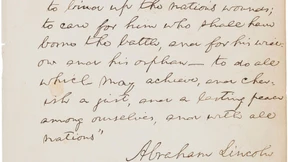 to bind up the nation's wounds;
to care for him who shall have
borne the battle, and for his wid-
ow and his orphan— to do all
which may achieve, and cher-
ish a just, and a lasting peace
among ourselves, and with all
nations"
Abraham Lincoln